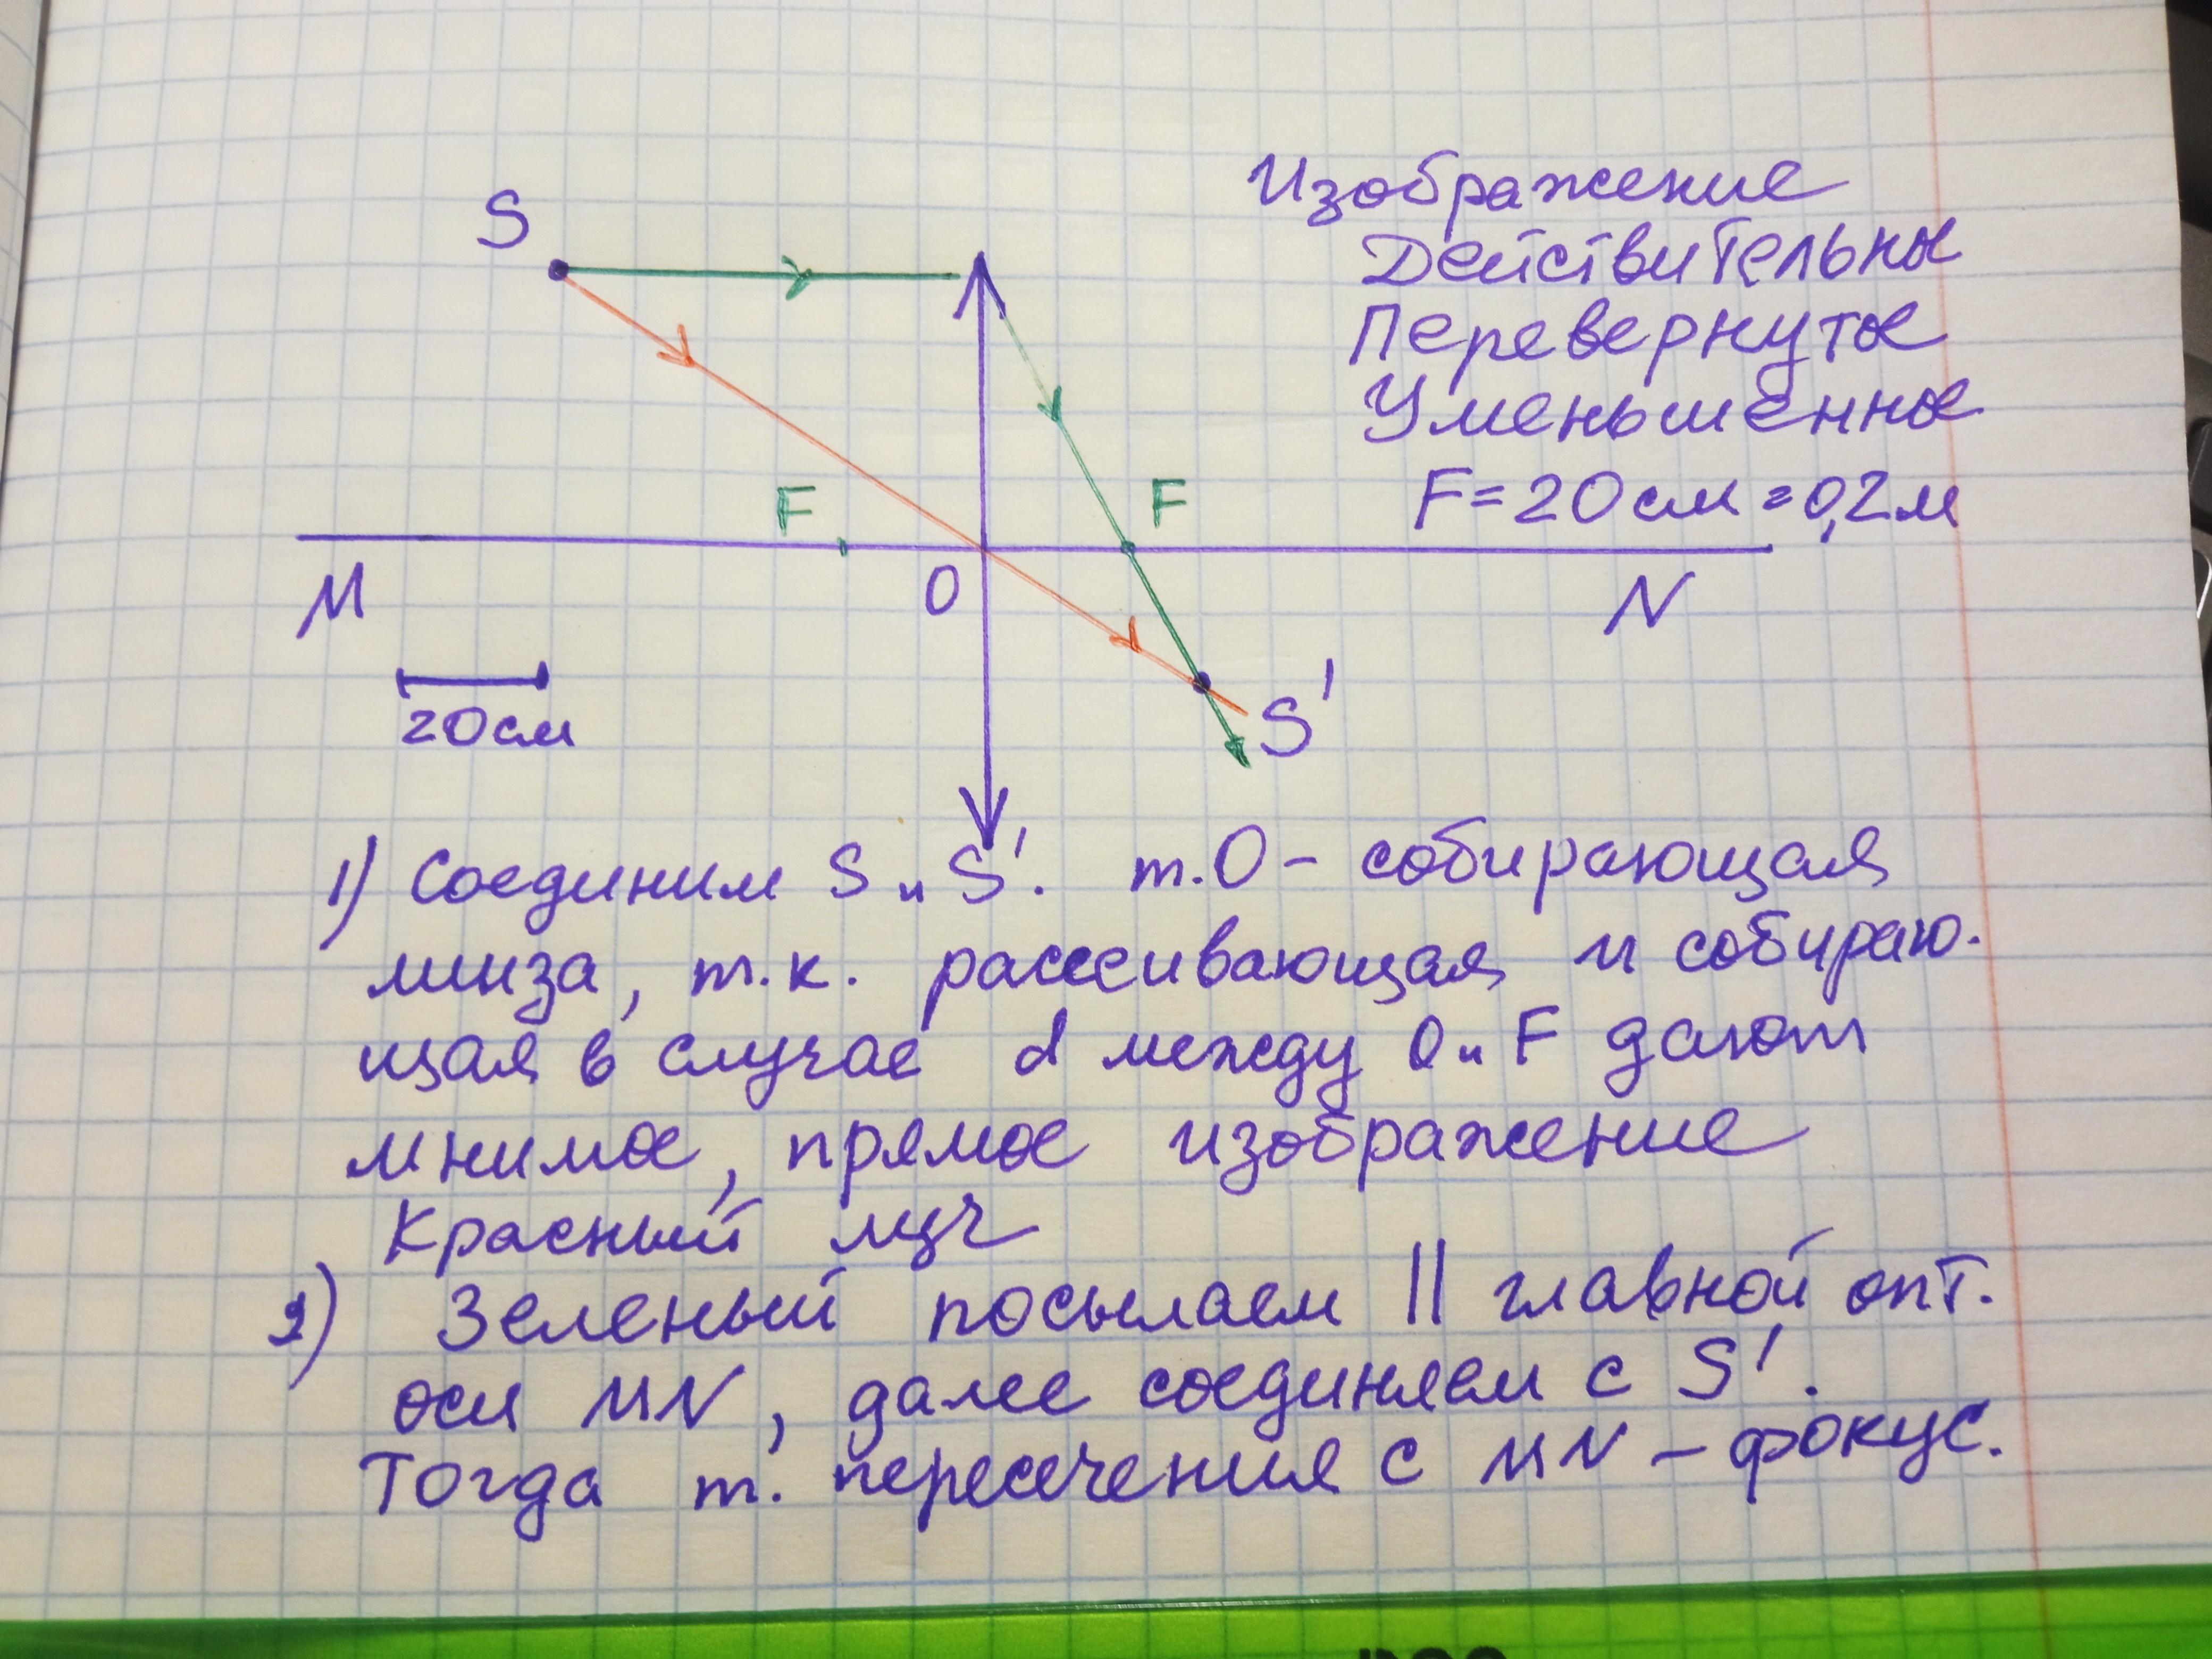 S
Изображение
Действительное
Перевернутое
Уменьшенное
F = 20 см = 0,2 м
F
F
M
O
N
20 см
S'
1) Соединим S и S'. т. O - собирающая
линза, т.к. рассеивающая и собираю-
щая в случае d между O и F дают
мнимое, прямое изображение
Красный луч
2) Зеленый посылаем || главной опт.
оси MN, далее соединяем с S'.
Тогда т. пересечения с MN - фокус.